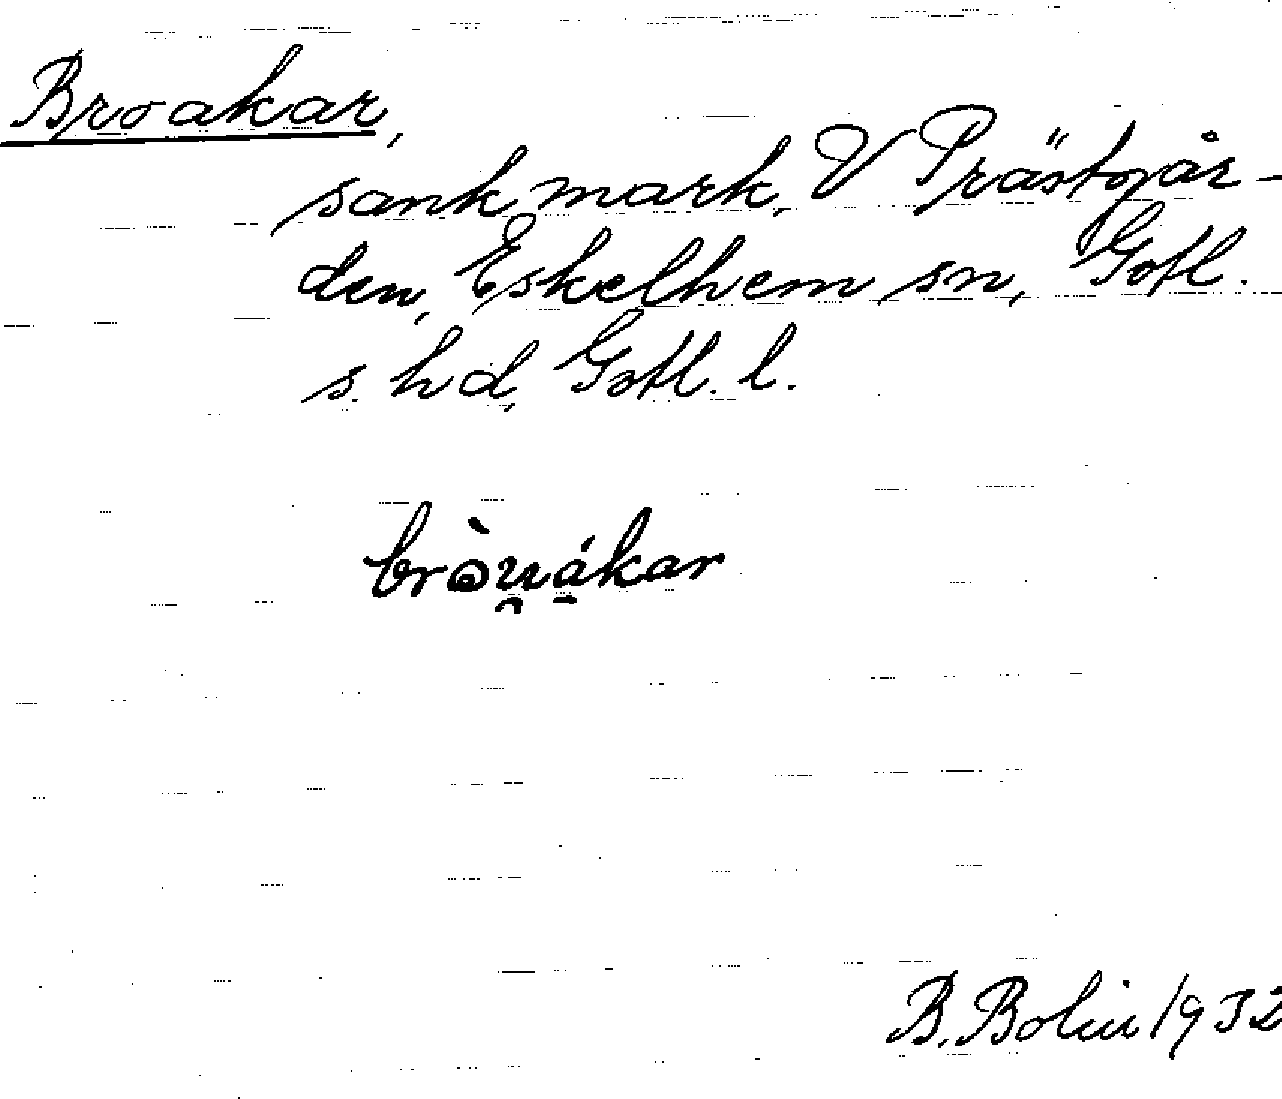 Broakar,
sank mark, V Prästgår-
den, Eskelhem sn, Gotl.
s. hd, Gotl. l.
B. Bolin 1932